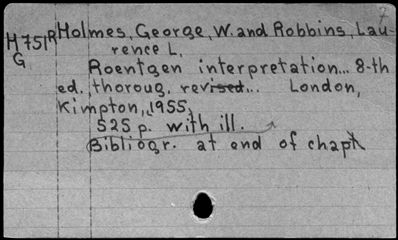 7
H751R Holmes, George, W. and Robbins, Lau-
G rence L.
Roentgen interpretation... 8-th
ed., thoroug. revised... London,
Kimpton, 1955,
525 p. with ill.
Bibliogr. at end of chapt